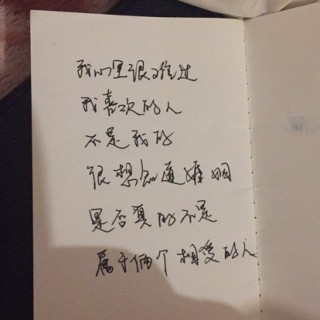 我心里很难过
我喜欢的人
不是我的
很想知道婚姻
是否真的不是
属于俩个相爱的人